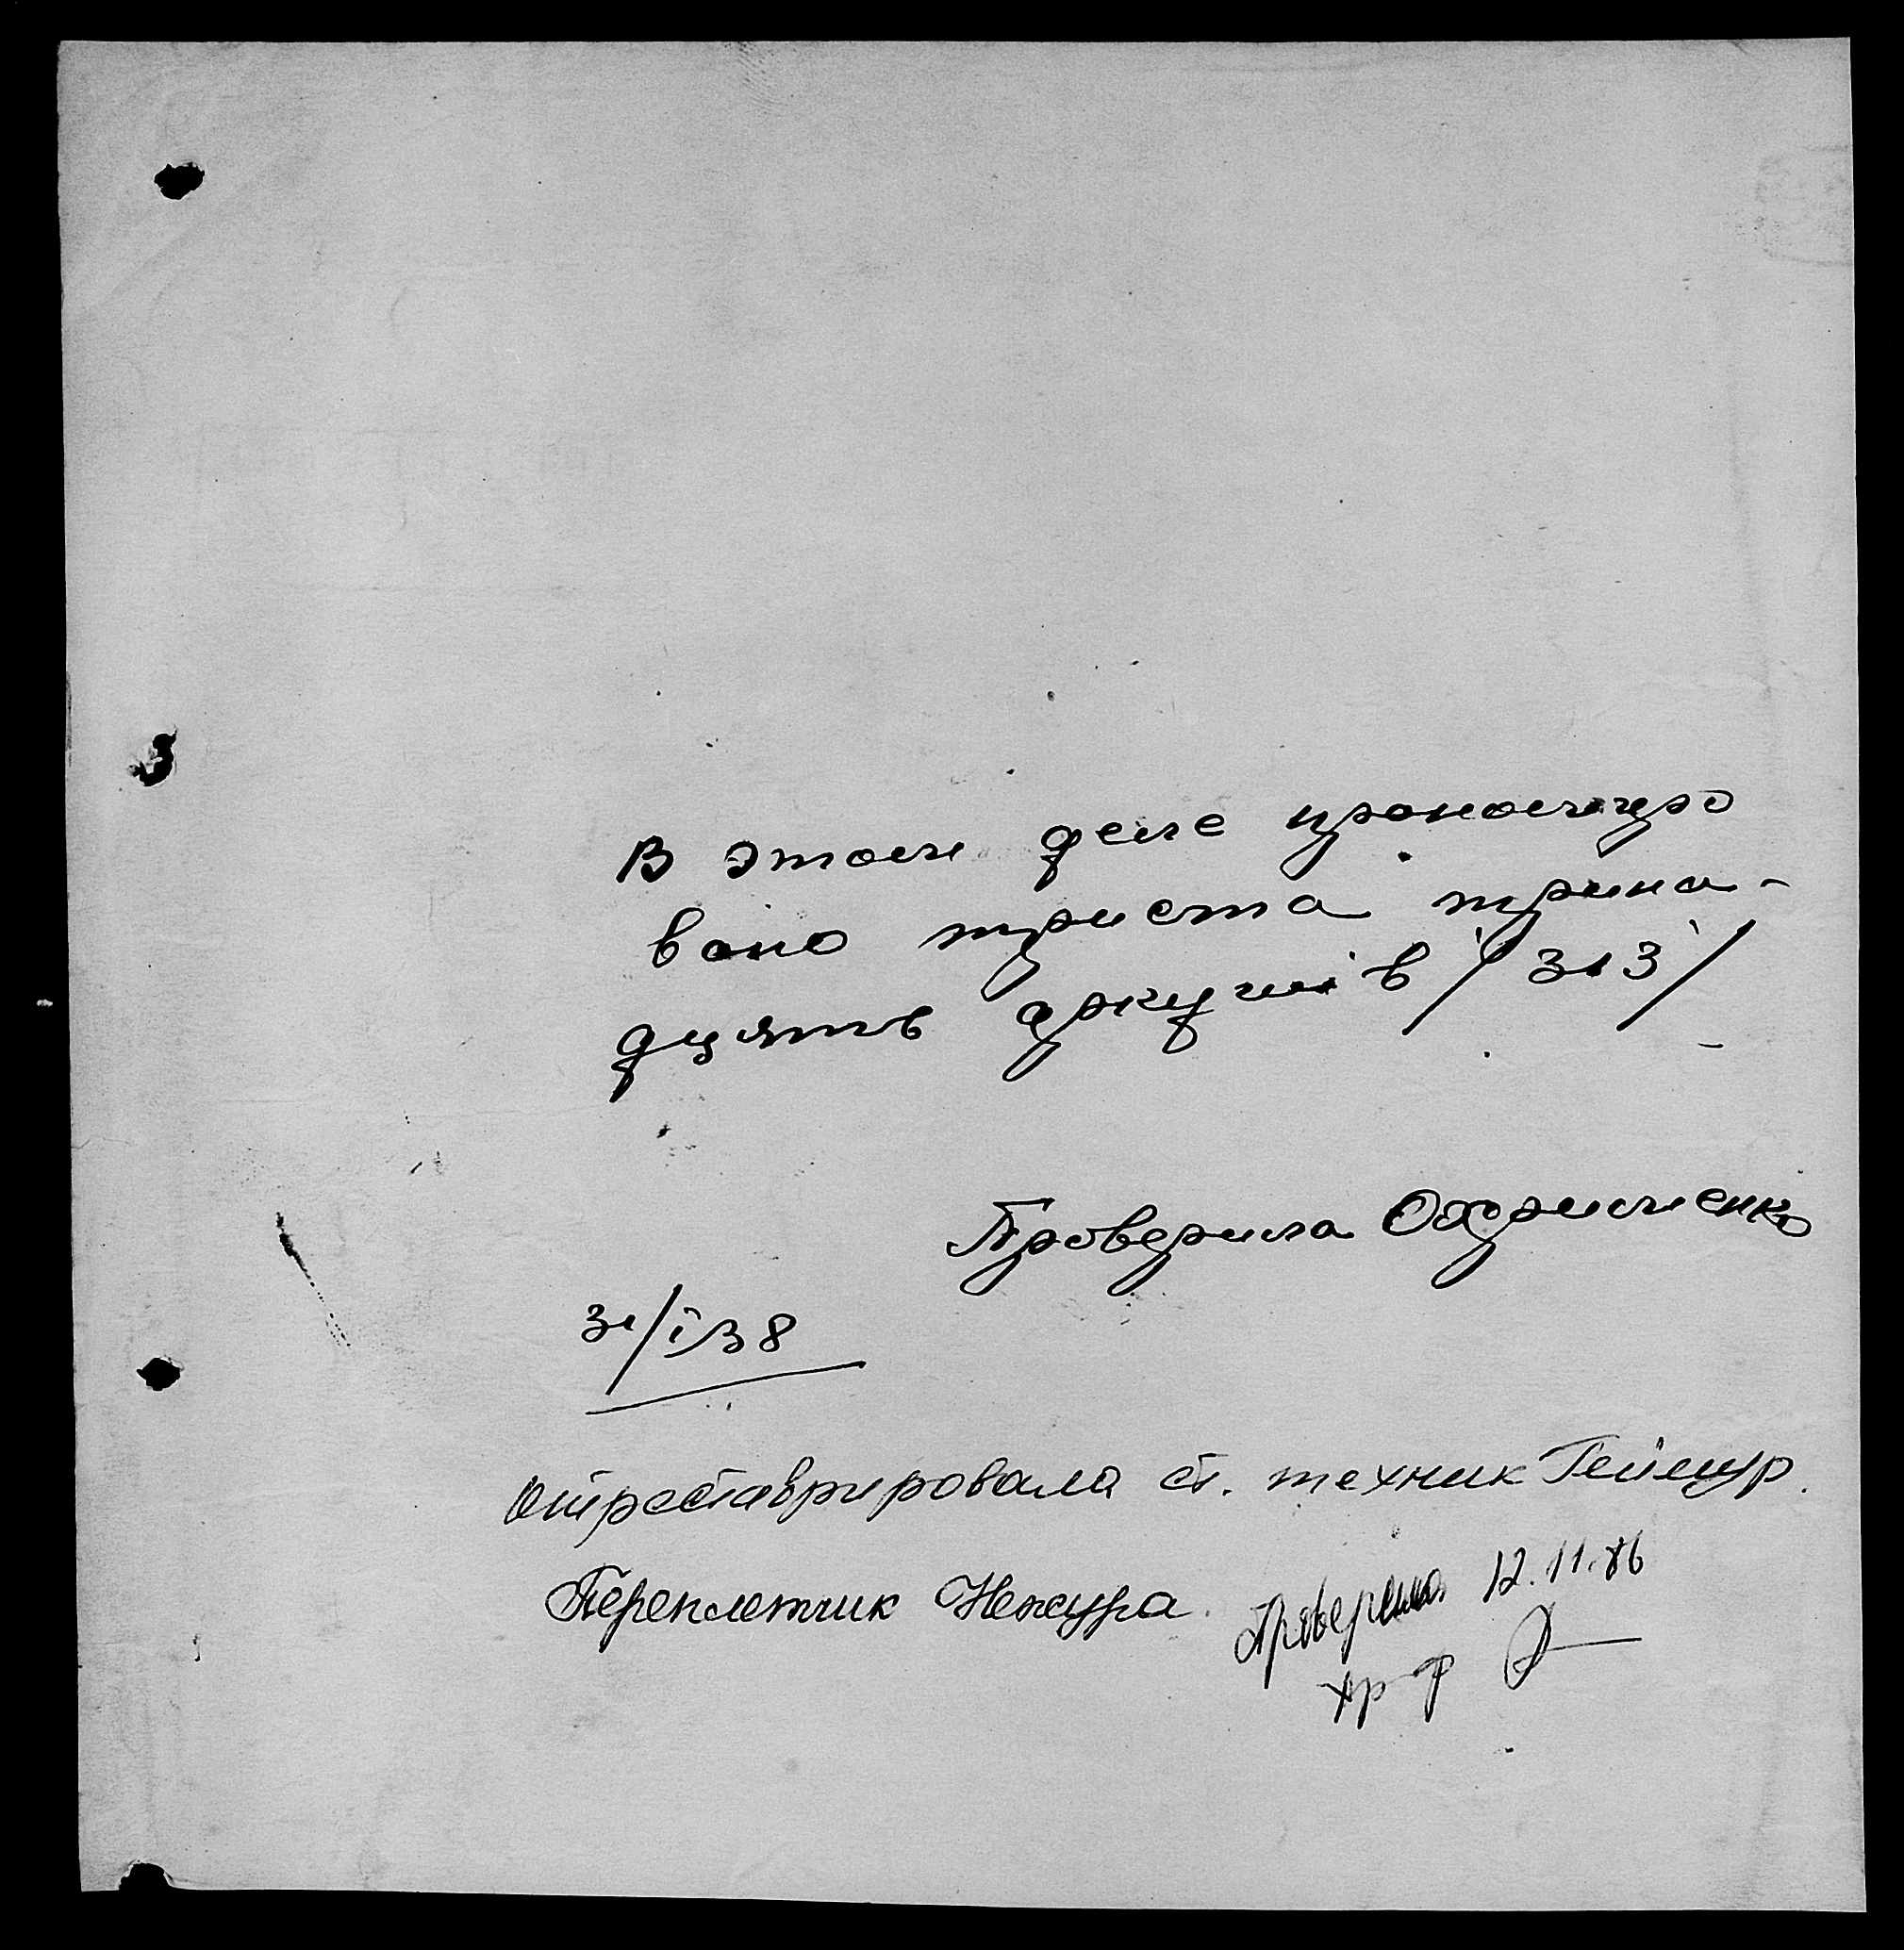 В этом деле пронумеро
вано триста трина-
дцять аркушів /313/
Проверила Охримченко
31/I/38
Отреставрировала ст. техник Геймур.
Переплетчик Нежура.
Проверена 12.11.86